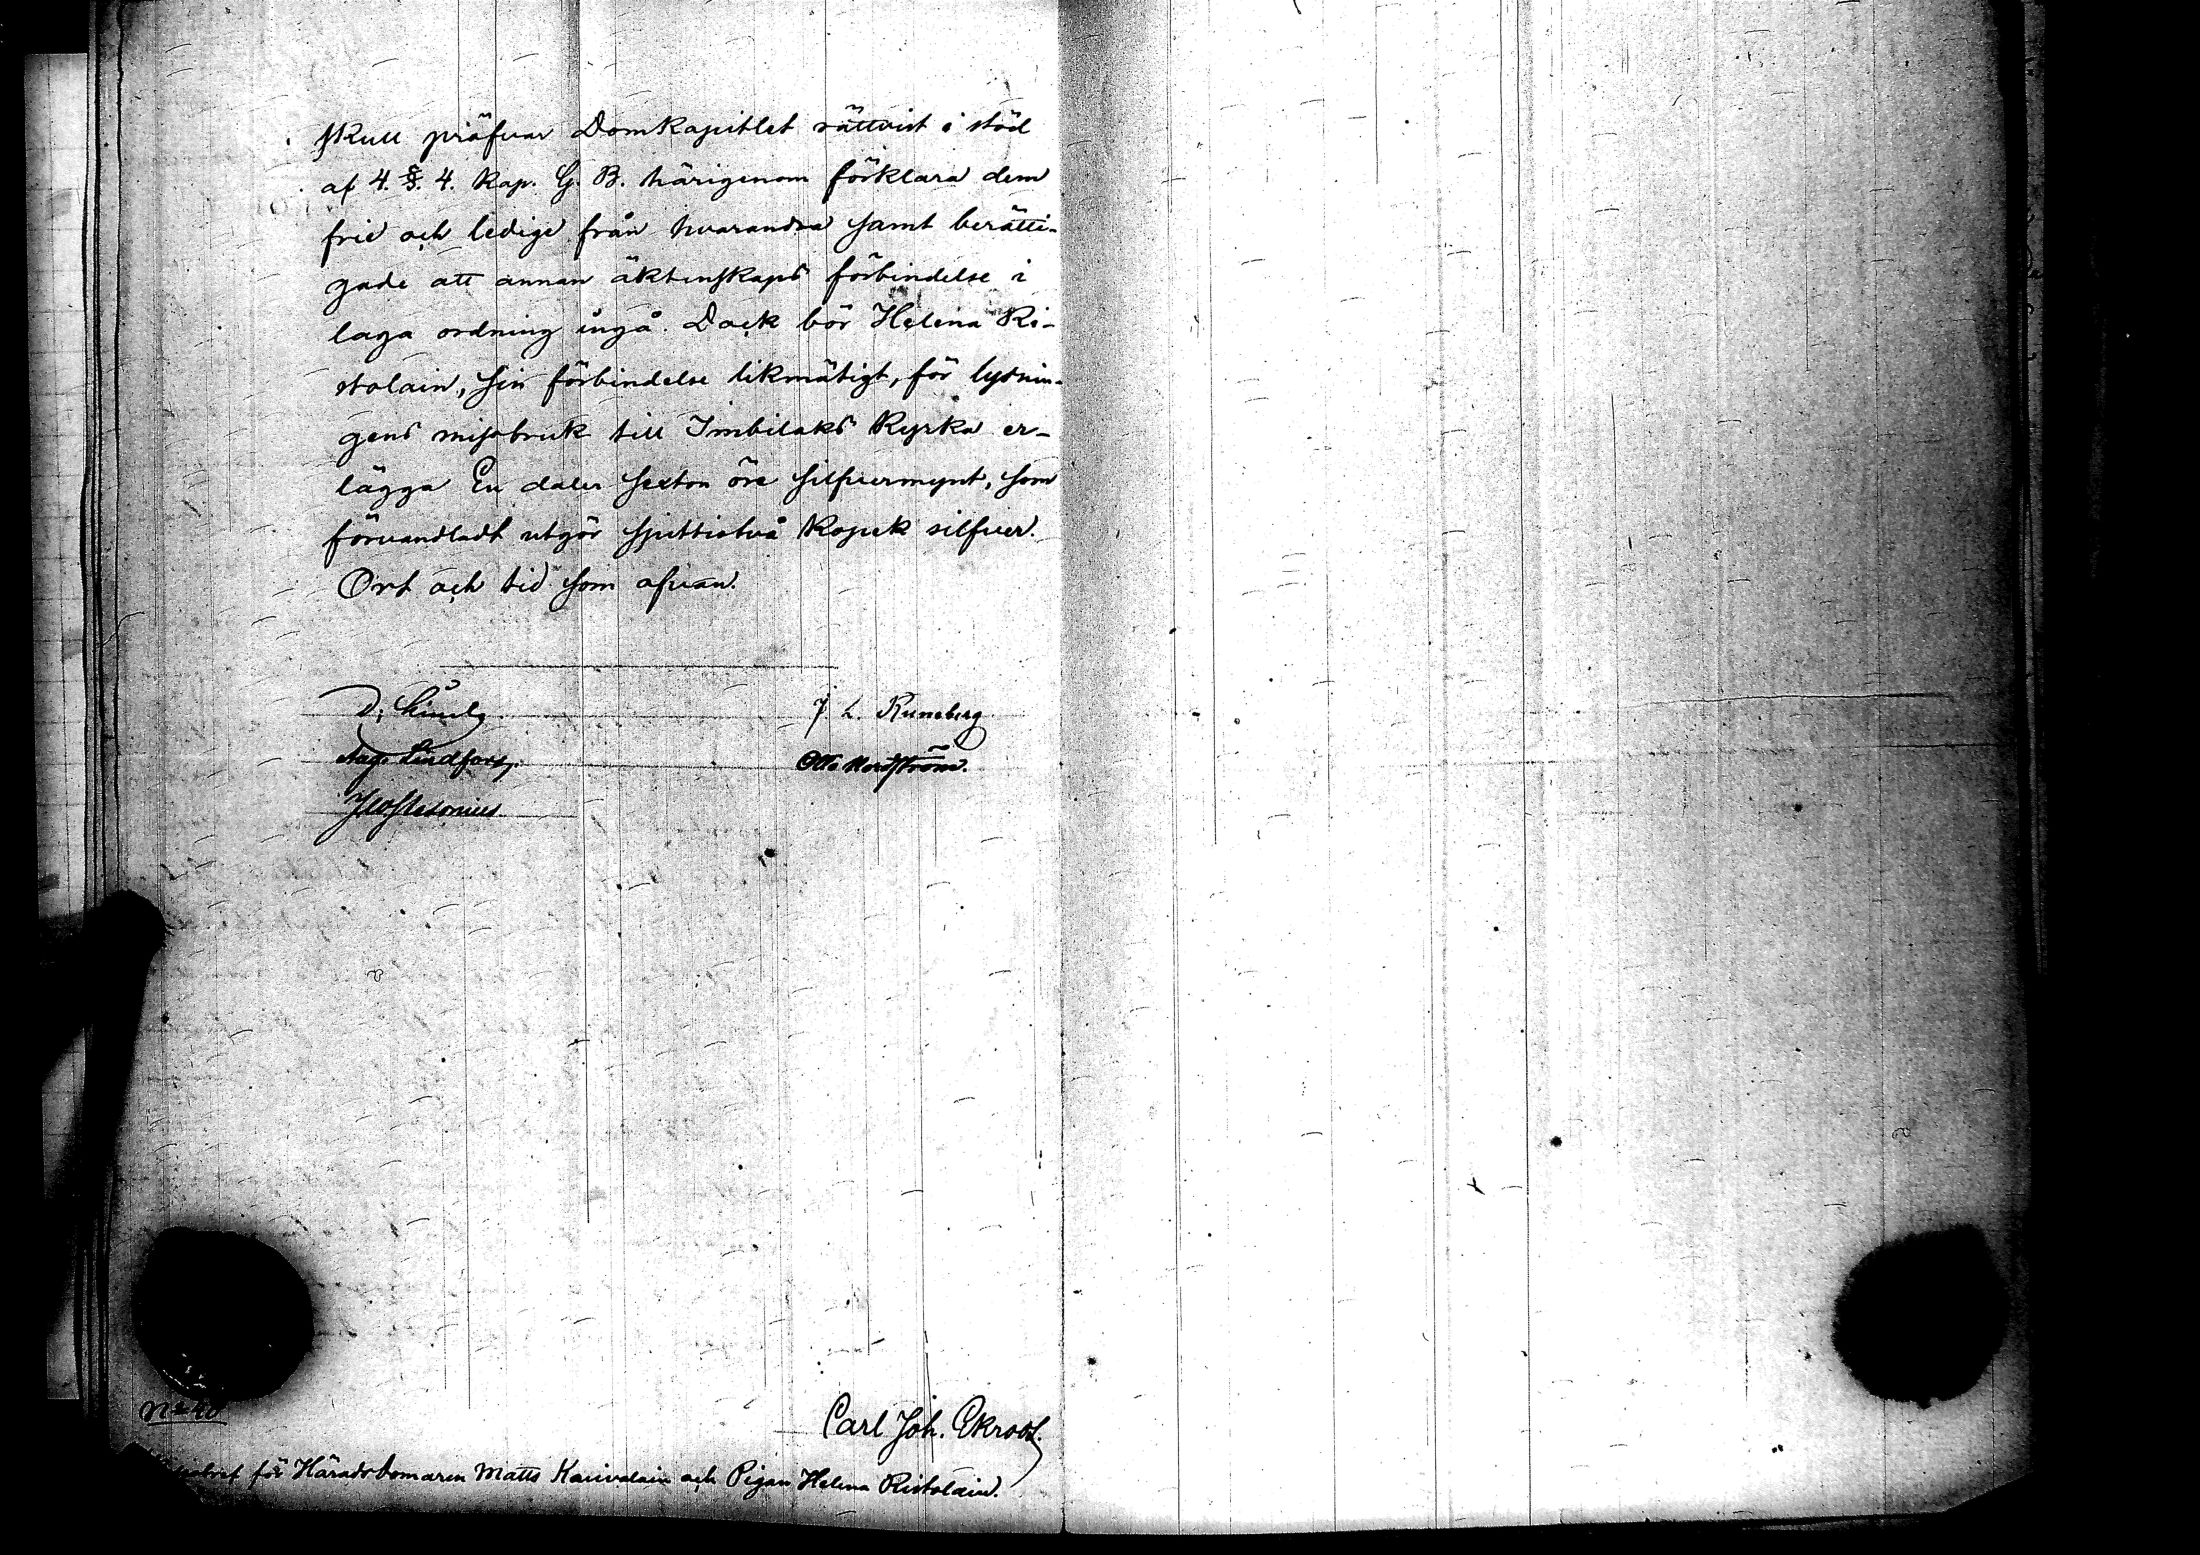 skull pröfvar Domkapitlet rättvist i stöd
af 4. §. 4. Kap. G. B. härigenom förklara dem
frie och ledige från hvarandra samt berätti-
gade att annan äktenskaps förbindelse i
laga ordning ingå. Dock bör Helena Ri-
stolain, sin förbindelse likmätigt, för lysnin-
gens missbruk till Imbilaks Kyrka er-
lägga En daler sexton öre silfvermynt, som
förvandladt utgör sjuttiotvå Kopek silfver.
Ort och tid som ofvan.
J. L. Runeberg
Aug. Lindfors.
Otto Nordström.
Carl Joh. Ekroos.
för Häradsdomaren Matts Karivalain och Pigan Helena Ristolain.